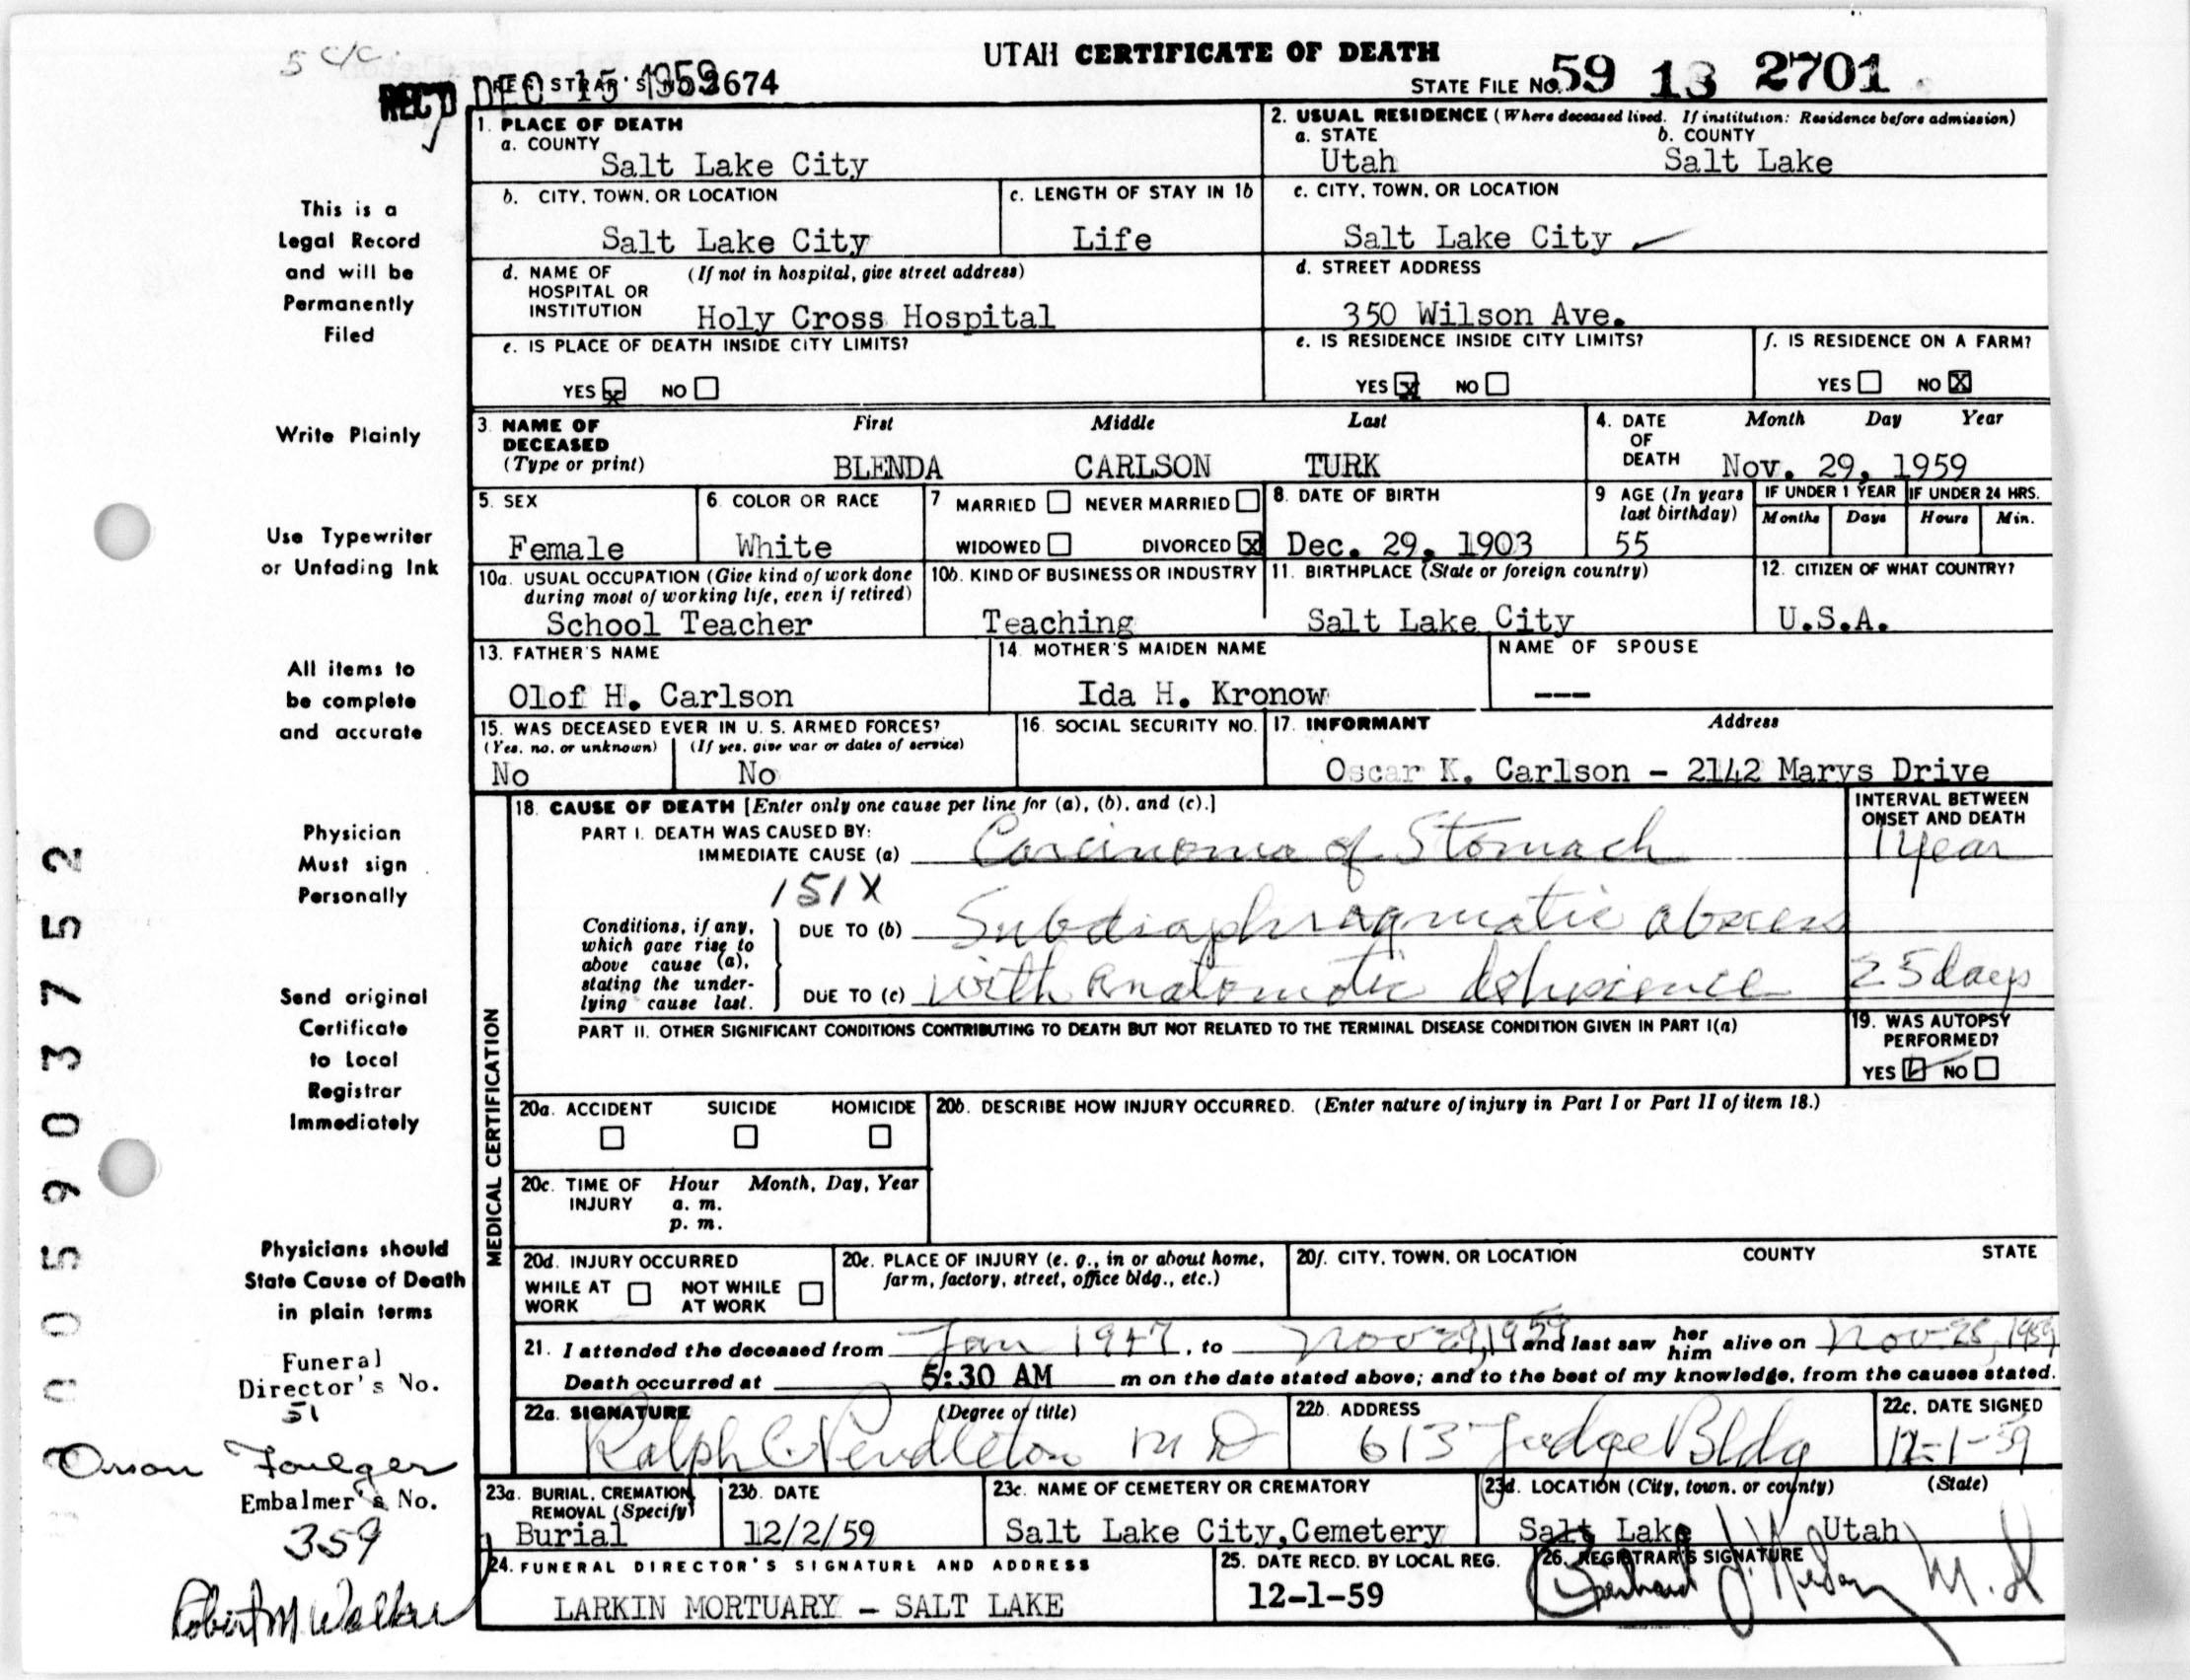 5 c/c
UTAH CERTIFICATE OF DEATH
REC'D DEC 15 1959 REGISTRAR'S NO. 2674
STATE FILE NO. 59 13 2701
1. PLACE OF DEATH
a. COUNTY
Salt Lake City
2. USUAL RESIDENCE (Where deceased lived. If institution: Residence before admission)
a. STATE b. COUNTY
Utah Salt Lake
b. CITY, TOWN, OR LOCATION
Salt Lake City
c. LENGTH OF STAY IN 1b
Life
c. CITY, TOWN, OR LOCATION
Salt Lake City
d. NAME OF HOSPITAL OR INSTITUTION (If not in hospital, give street address)
Holy Cross Hospital
d. STREET ADDRESS
350 Wilson Ave.
e. IS PLACE OF DEATH INSIDE CITY LIMITS?
YES X NO
e. IS RESIDENCE INSIDE CITY LIMITS?
YES X NO
f. IS RESIDENCE ON A FARM?
YES NO X
3. NAME OF DECEASED (Type or print)
First Middle Last
BLENDA CARLSON TURK
4. DATE OF DEATH
Month Day Year
Nov. 29, 1959
5. SEX
Female
6. COLOR OR RACE
White
7 MARRIED NEVER MARRIED
WIDOWED DIVORCED X
8. DATE OF BIRTH
Dec. 29, 1903
9 AGE (In years last birthday)
55
IF UNDER 1 YEAR
Months Days
IF UNDER 24 HRS.
Hours Min.
10a. USUAL OCCUPATION (Give kind of work done during most of working life, even if retired)
School Teacher
10b. KIND OF BUSINESS OR INDUSTRY
Teaching
11. BIRTHPLACE (State or foreign country)
Salt Lake City
12. CITIZEN OF WHAT COUNTRY?
U.S.A.
13. FATHER'S NAME
Olof H. Carlson
14. MOTHER'S MAIDEN NAME
Ida H. Kronow
NAME OF SPOUSE
---
15. WAS DECEASED EVER IN U. S. ARMED FORCES?
(Yes, no, or unknown) (If yes, give war or dates of service)
No No
16. SOCIAL SECURITY NO.
17. INFORMANT Address
Oscar K. Carlson - 2142 Marys Drive
MEDICAL CERTIFICATION
18. CAUSE OF DEATH [Enter only one cause per line for (a), (b), and (c).]
INTERVAL BETWEEN ONSET AND DEATH
PART I. DEATH WAS CAUSED BY:
IMMEDIATE CAUSE (a) Carcinoma of Stomach 1 year
151X
Conditions, if any, which gave rise to above cause (a), stating the underlying cause last.
DUE TO (b) Subdiaphragmatic abscess
DUE TO (c) with anatomotic dehiscence 25 days
PART II. OTHER SIGNIFICANT CONDITIONS CONTRIBUTING TO DEATH BUT NOT RELATED TO THE TERMINAL DISEASE CONDITION GIVEN IN PART I(a)
19. WAS AUTOPSY PERFORMED?
YES NO
20a. ACCIDENT SUICIDE HOMICIDE
20b. DESCRIBE HOW INJURY OCCURRED. (Enter nature of injury in Part I or Part II of item 18.)
20c. TIME OF INJURY Hour Month, Day, Year
a. m.
p. m.
20d. INJURY OCCURRED
WHILE AT WORK NOT WHILE AT WORK
20e. PLACE OF INJURY (e. g., in or about home, farm, factory, street, office bldg., etc.)
20f. CITY, TOWN, OR LOCATION COUNTY STATE
21. I attended the deceased from Jan 1947, to Nov 29, 1959 and last saw her him alive on Nov 28, 1959
Death occurred at 5:30 AM m on the date stated above; and to the best of my knowledge, from the causes stated.
22a. SIGNATURE (Degree or title)
Ralph C Pendleton M D
22b. ADDRESS
613 Judge Bldg
22c. DATE SIGNED
12-1-59
23a. BURIAL, CREMATION, REMOVAL (Specify)
Burial
23b. DATE
12/2/59
23c. NAME OF CEMETERY OR CREMATORY
Salt Lake City, Cemetery
23d. LOCATION (City, town, or county) (State)
Salt Lake Utah
24. FUNERAL DIRECTOR'S SIGNATURE AND ADDRESS
LARKIN MORTUARY - SALT LAKE
25. DATE RECD. BY LOCAL REG.
12-1-59
26. REGISTRAR'S SIGNATURE
M. D
This is a
Legal Record
and will be
Permanently
Filed
Write Plainly
Use Typewriter
or Unfading Ink
All items to
be complete
and accurate
Physician
Must sign
Personally
Send original
Certificate
to Local
Registrar
Immediately
Physicians should
State Cause of Death
in plain terms
Funeral
Director's No.
51
Orson Foulger
Embalmer's No.
359
Robert M Walker
005903752